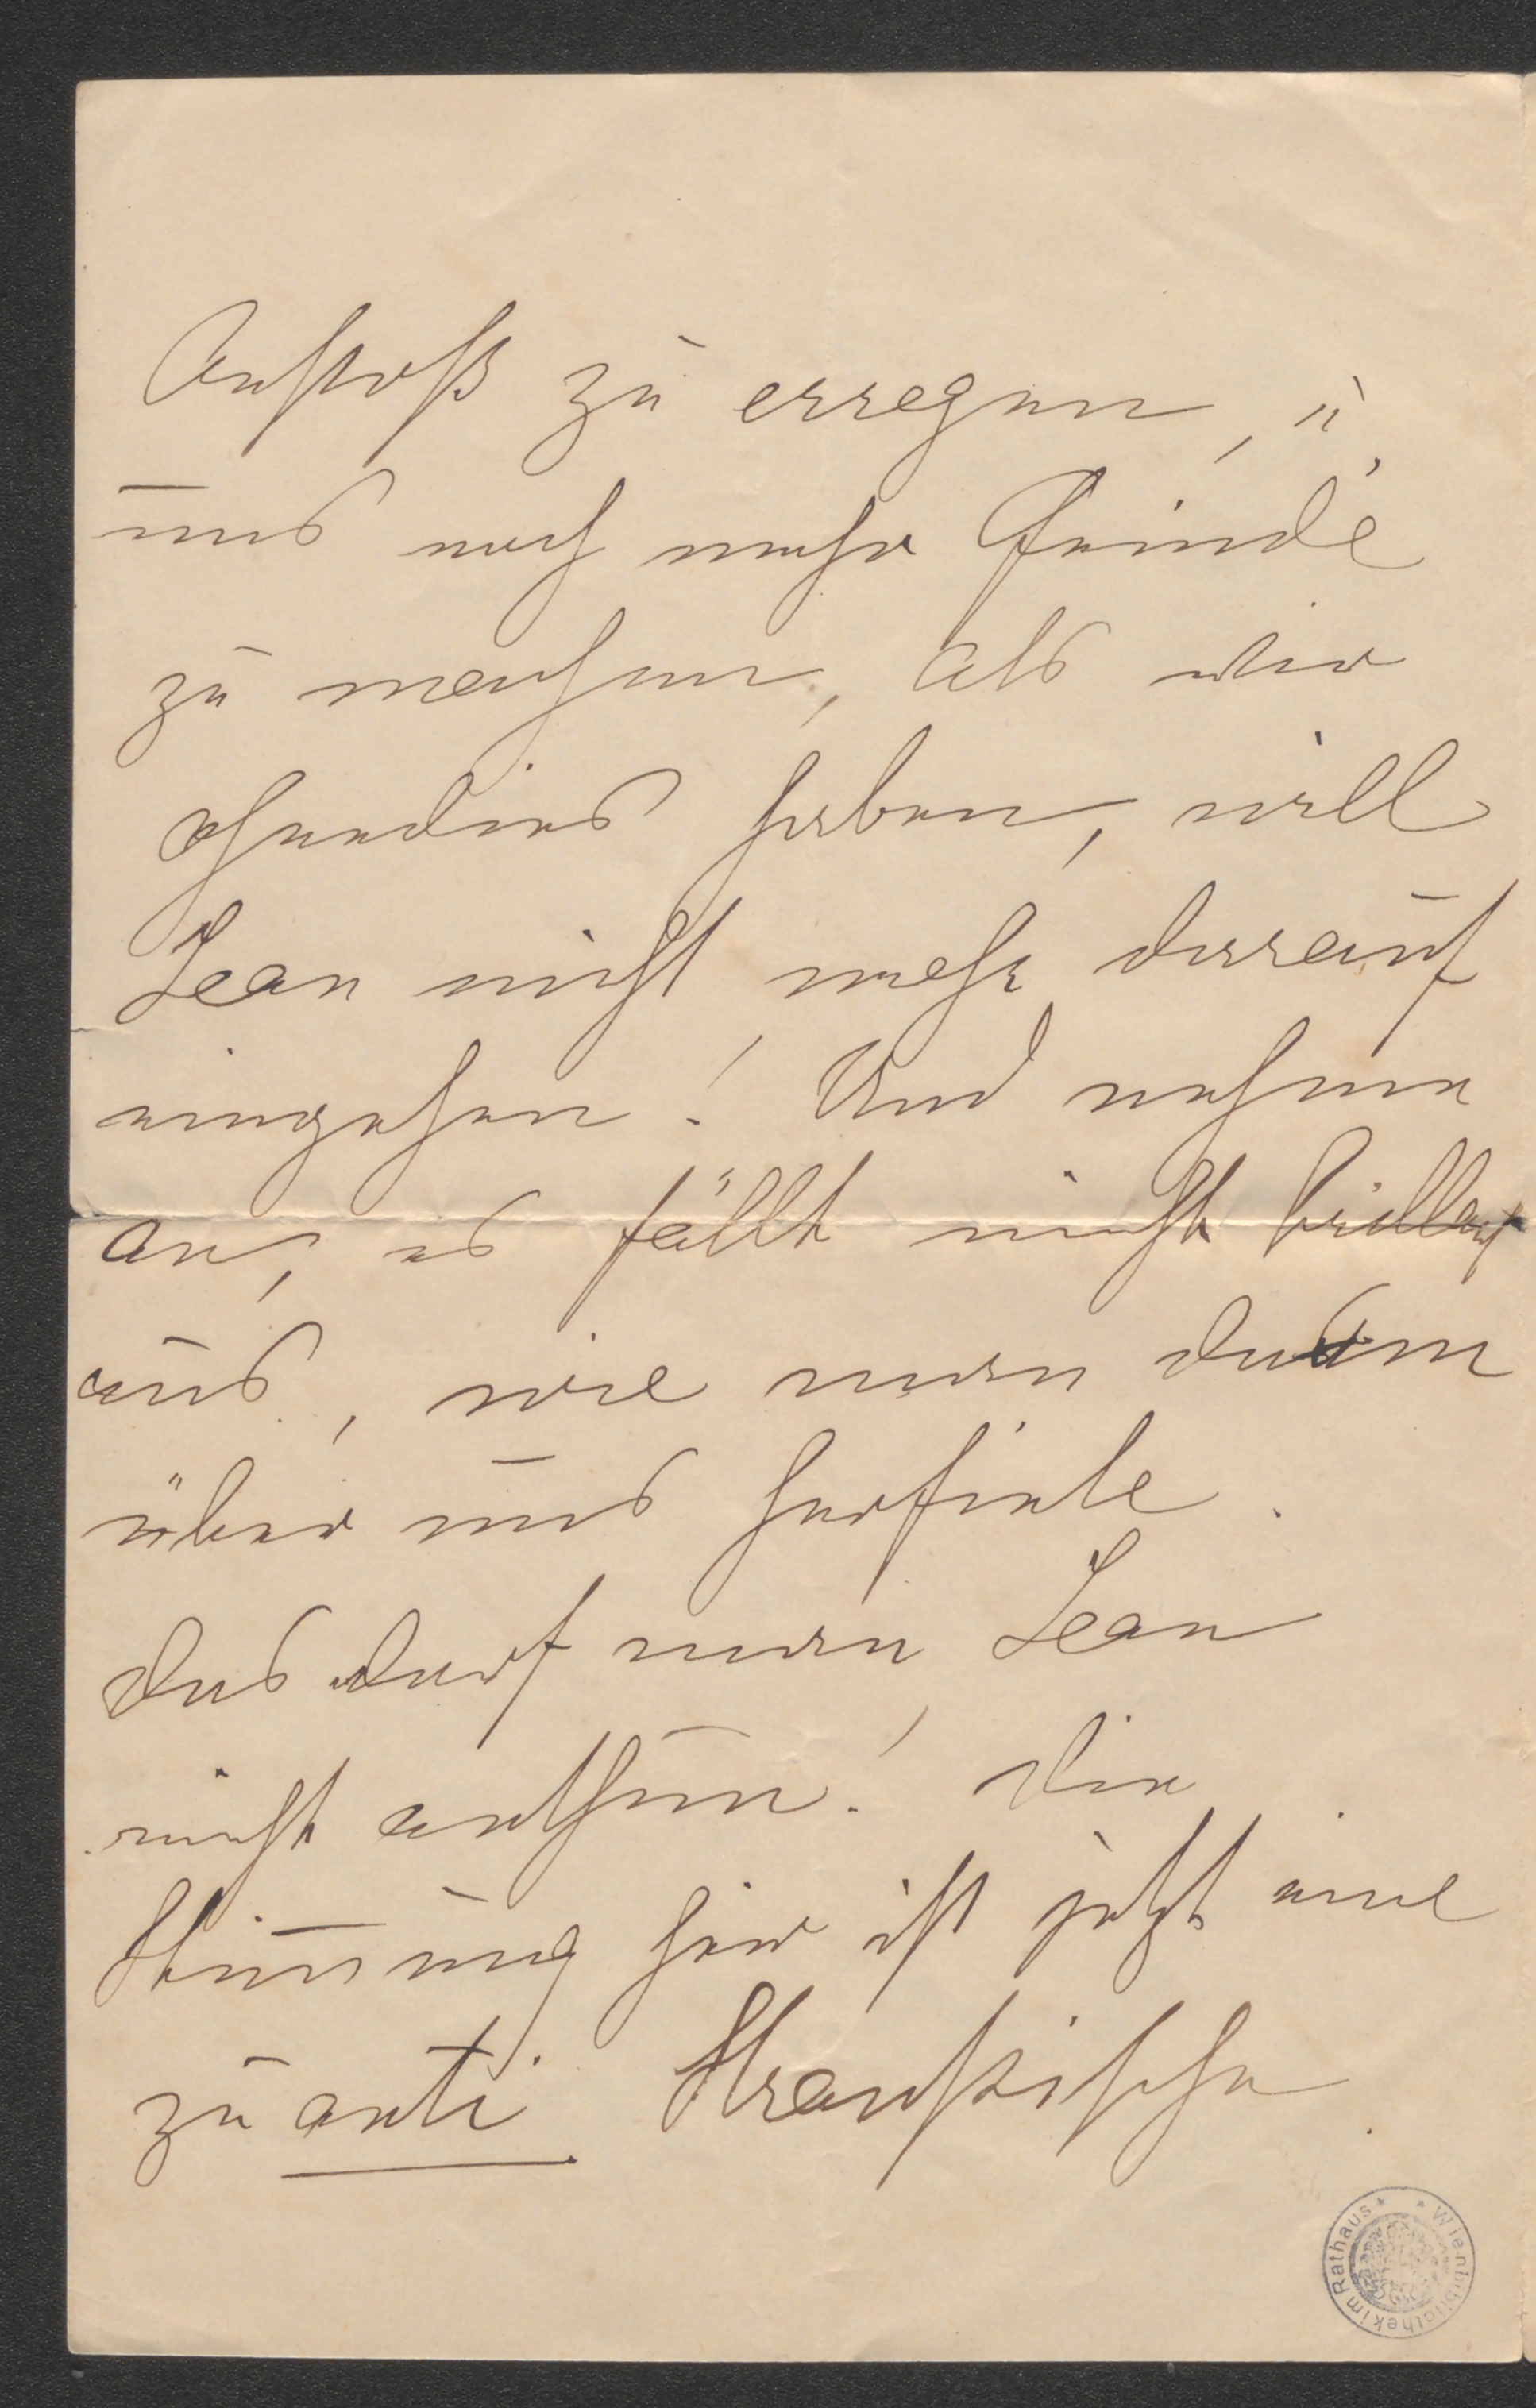 Anstoß zu erregen, u.
uns noch mehr Feinde
zu machen, als wir
ohnedies haben, will
Jean nicht mehr darauf
eingehen! Und nehme
an, es fällt nicht brillant
aus, wie man dann
über uns herfiele.
Das darf man Jean
nicht anthun! Die
Stimmung hier ist jetzt eine
zu anti Straussische.
Wienbibliothek im Rathaus